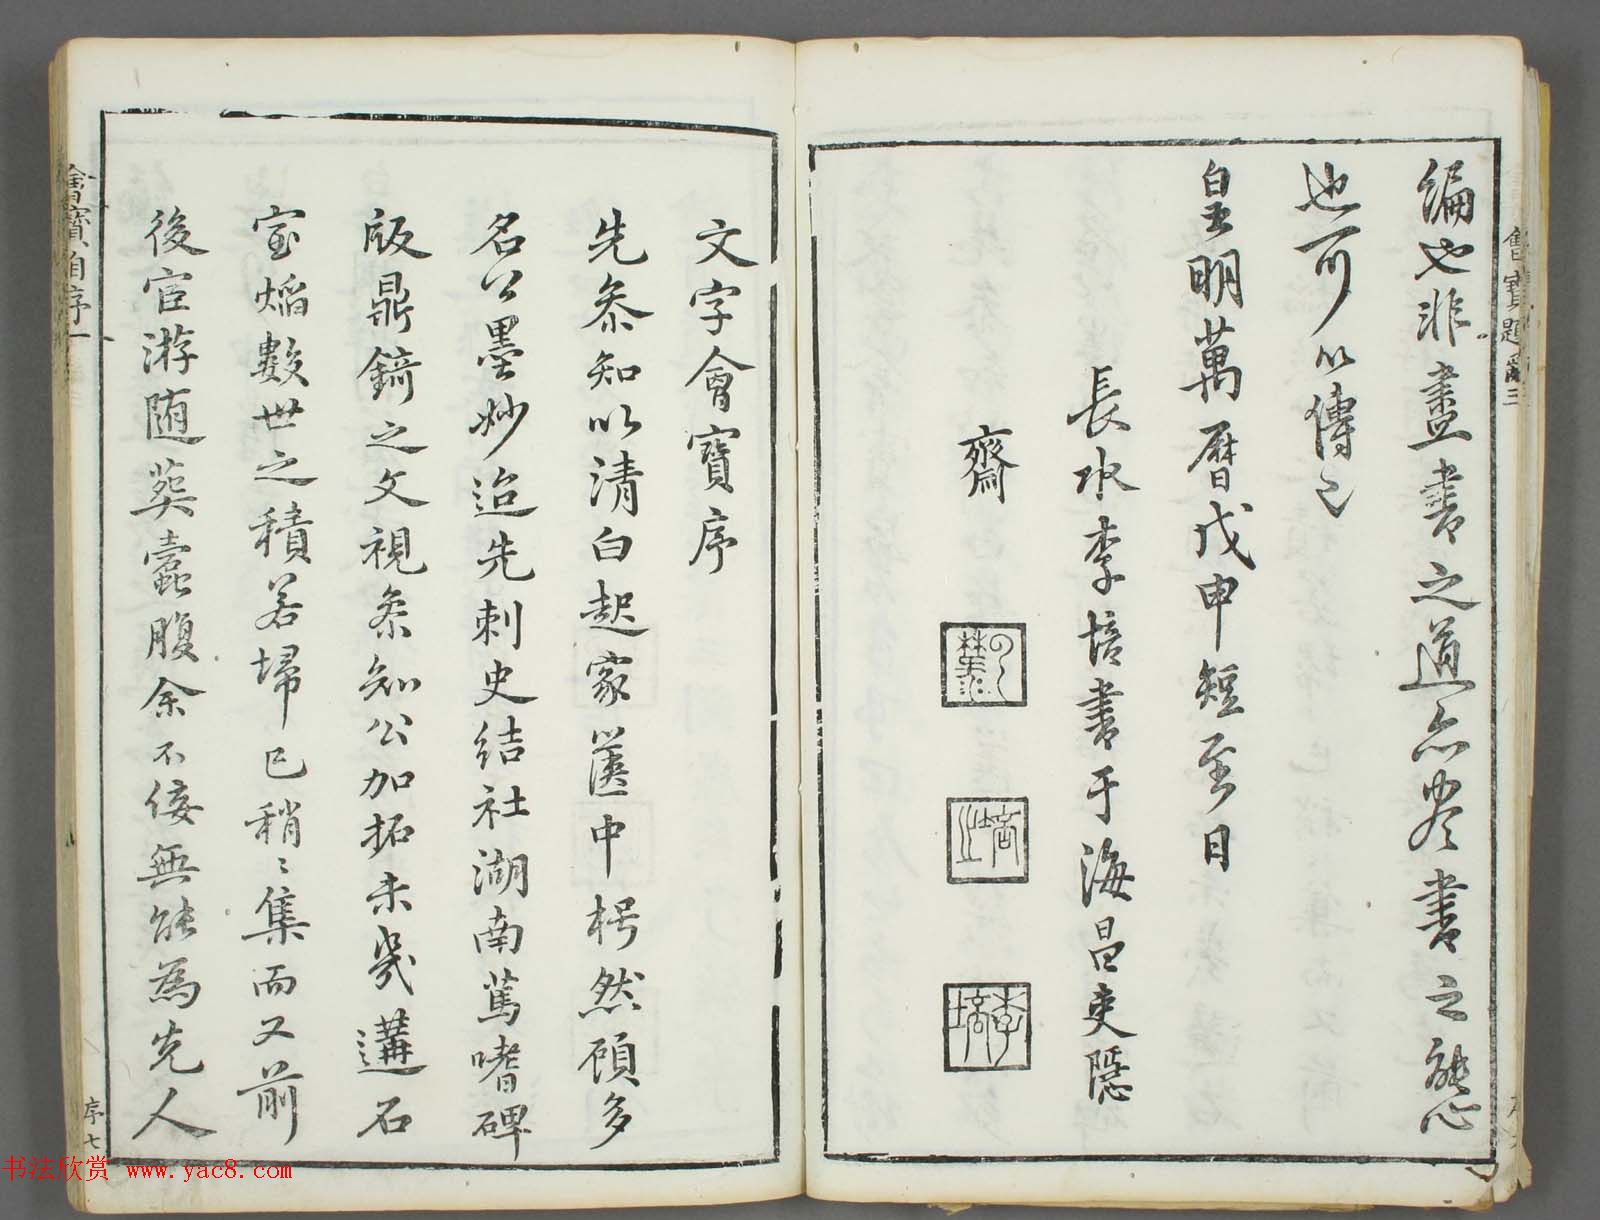 編也非盡書之道亦盡書之態
也可以傳已
皇明萬曆戊申短至日
長水李培書于海昌吏隱
齋
李培
會寶題辭三
文字會寶序
先叅知以清白起家篋中枵然頋多
名公墨妙迨先刺史結社湖南篤嗜碑
版鼎錡之文視叅知公加拓未幾遘石
室熖數世之積若埽已稍〻集而又前
後宦游随葬蠹腹余不佞無能為先人
會寶自序一
序七
书法欣赏 www.yac8.com